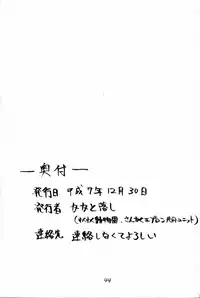 — 奥付 —
発行日 平成7年12月30日
発行者 ななと落し
連絡先 連絡しなくてよろしい
99